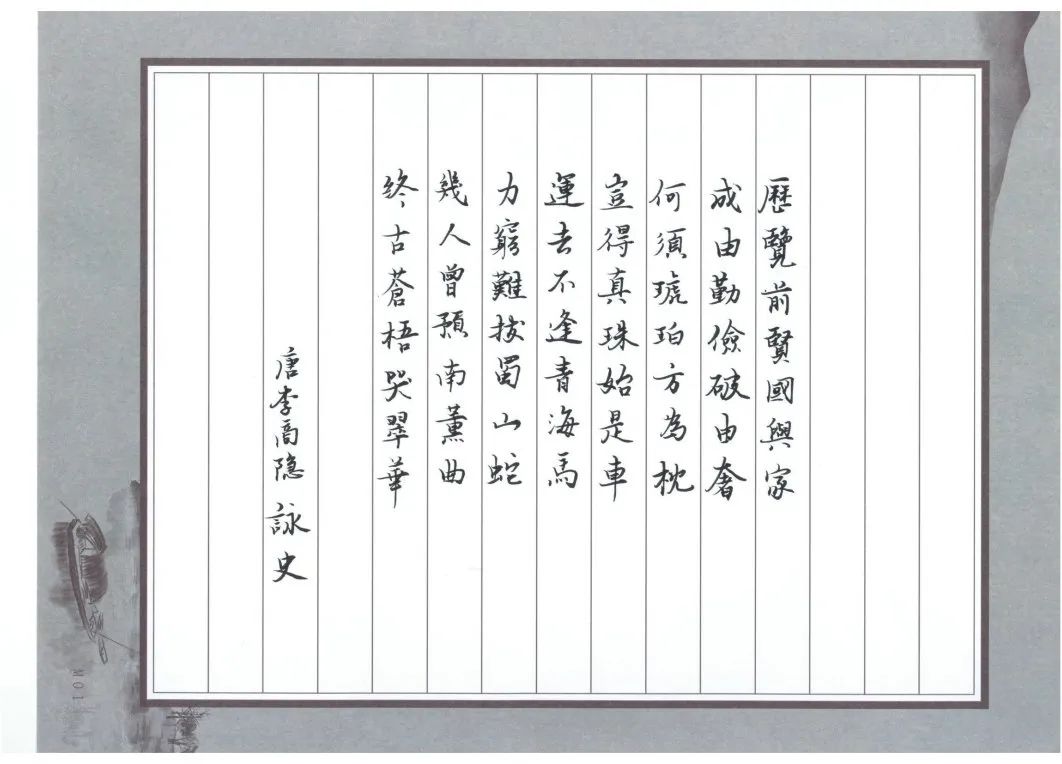 歷覽前賢國與家
成由勤儉破由奢
何須琥珀方為枕
豈得真珠始是車
運去不逢青海馬
力窮難拔蜀山蛇
幾人曾預南薰曲
終古蒼梧哭翠華
唐李商隐 詠史
M01